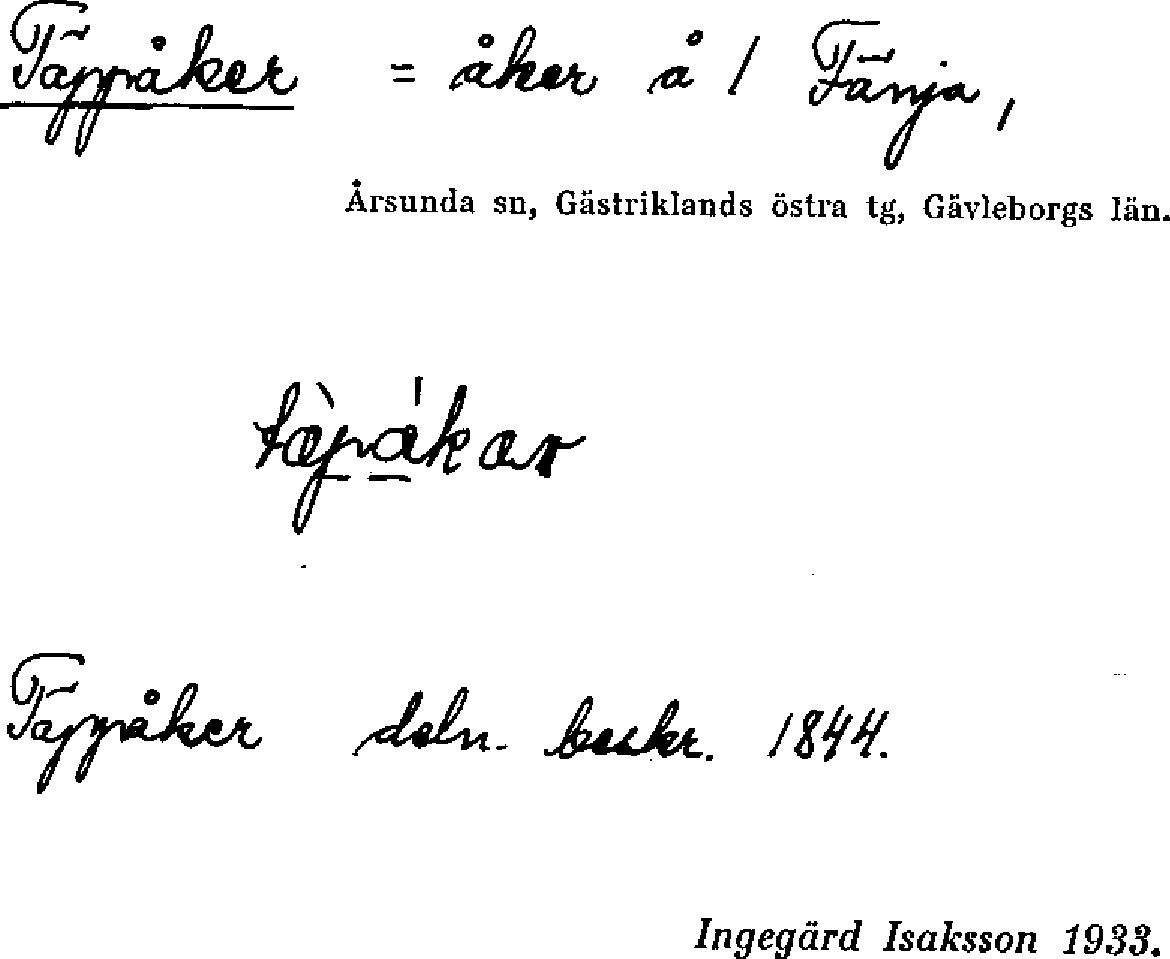 Täppåker = åker å / Fänja,
Årsunda sn, Gästriklands östra tg, Gävleborgs län.
tæ̀pákær
Täppåker deln. beskr. 1844.
Ingegärd Isaksson 1933.